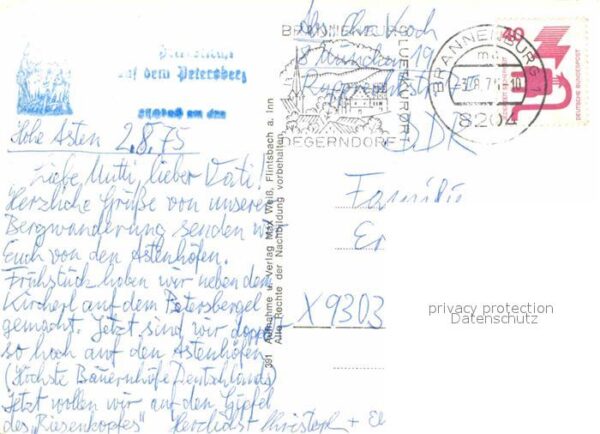 auf dem Petersberg
Hohe Asten 2.8.75
Liebe Mutti, lieber Vati!
Herzliche Grüße von unserer
Bergwanderung senden wir
Euch von den Astenhöfen.
Frühstück haben wir neben dem
Kircherl auf dem Petersbergel
gemacht. Jetzt sind wir doppelt
so hoch auf den Astenhöfen
(Höchste Bauernhöfe Deutschlands)
Jetzt wollen wir auf den Gipfel
des "Riesenkopfes" Herzlichst Christoph + El
391 Aufnahme u. Verlag Max Weiß, Flintsbach a. Inn
Alle Rechte der Nachbildung vorbehalten
Koch
8 München 19
DDR
BRANNENBURG
LUFTKURORT
DEGERNDORF
BRANNENBURG 1
8204
40
DEUTSCHE BUNDESPOST
Familie
Er
X9303
privacy protection
Datenschutz